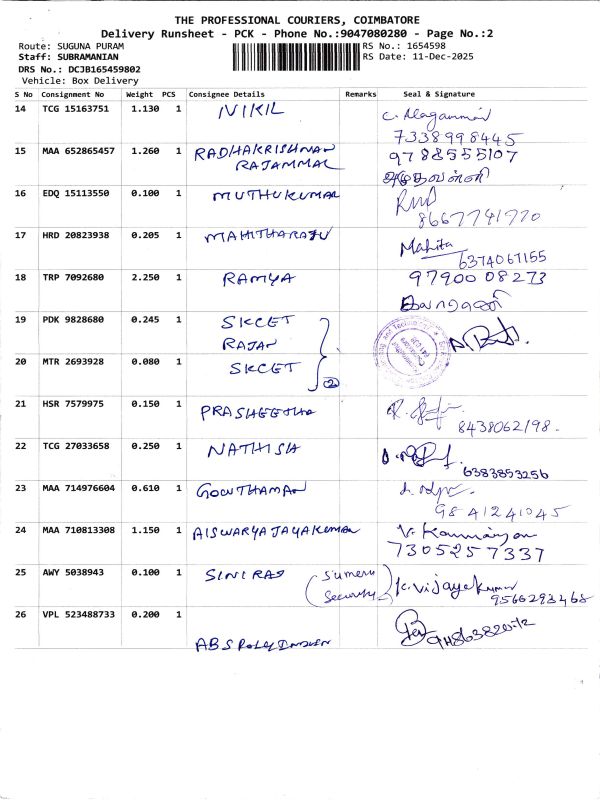 THE PROFESSIONAL COURIERS, COIMBATORE
Delivery Runsheet - PCK - Phone No.:9047080280 - Page No.:2
Route: SUGUNA PURAM RS No.: 1654598
Staff: SUBRAMANIAN RS Date: 11-Dec-2025
DRS No.: DCJB165459802
Vehicle: Box Delivery
S No Consignment No Weight PCS Consignee Details Remarks Seal & Signature
14 TCG 15163751 1.130 1 NIKIL
7338998445
15 MAA 652865457 1.260 1 RADHAKRISHNAN 9788555107
RAJAMMAL
16 EDQ 15113550 0.100 1 MUTHUKUMAR
8667741770
17 HRD 20823938 0.205 1 MAHITHARAJU Mahita
6374067155
18 TRP 7092680 2.250 1 RAMYA 9790008273
19 PDK 9828680 0.245 1 SKCET
RAJAN
20 MTR 2693928 0.080 1 SKCET
2
21 HSR 7579975 0.150 1 PRASHEETHA
8438062198.
22 TCG 27033658 0.250 1 NATHISH
6383853256
23 MAA 714976604 0.610 1 GOWTHAMAN
9841241045
24 MAA 710813308 1.150 1 AISWARYA JAYAKUMAR
7305257337
25 AWY 5038943 0.100 1 SINIRAJ (Sumeru Security) K. Vijayakumar
9566293468
26 VPL 523488733 0.200 1
ABS